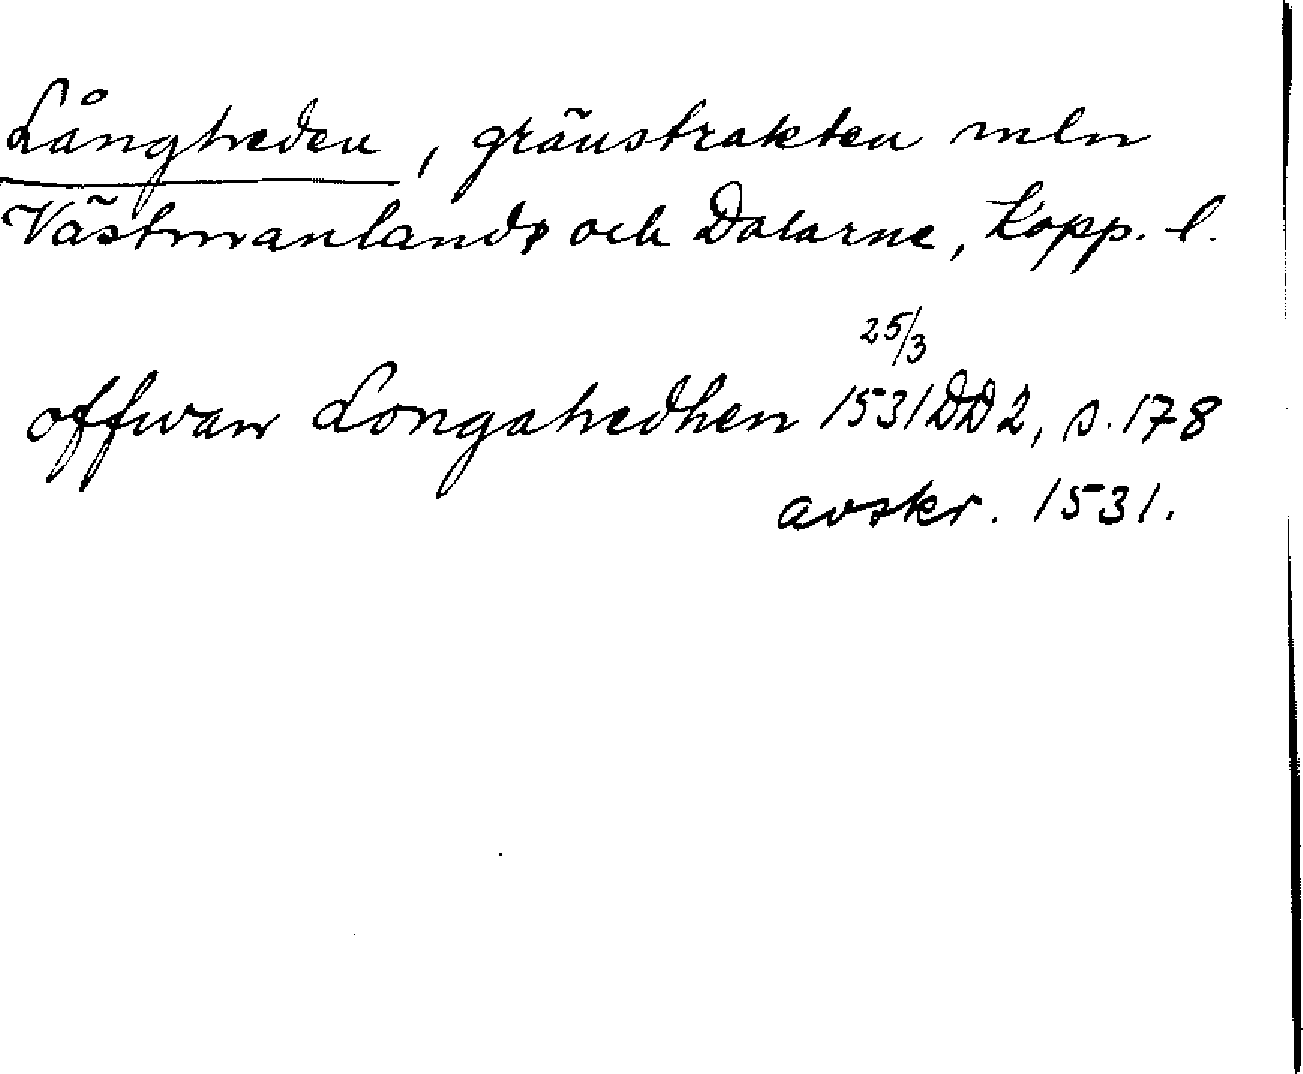 Långheden, gränstrakten mln
Västmanland och Dalarne, Kopp. l.
25/3
offwan Longahedhen 1531 DD 2, s. 178
avskr. 1531.